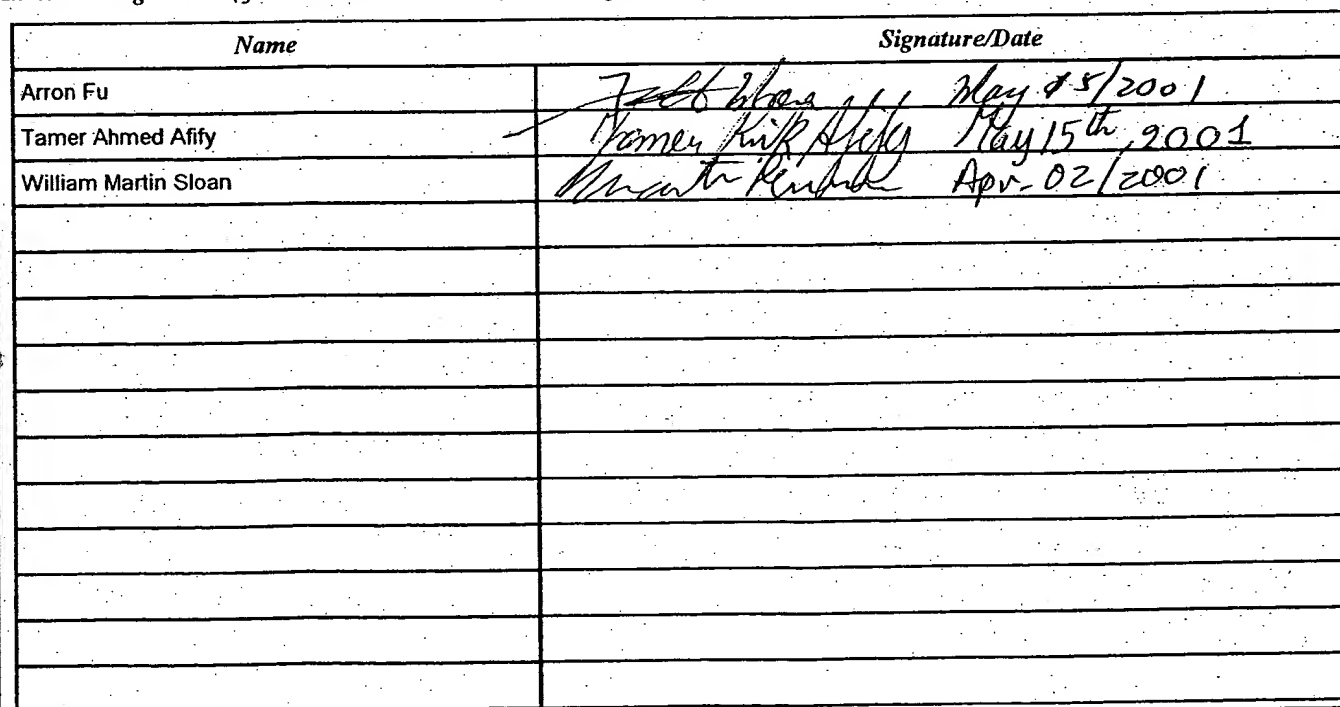 Name Signature/Date
Arron Fu May 15/2001
Tamer Ahmed Afify Tamer Kirk Afify May 15th, 2001
William Martin Sloan Apr. 02/2001